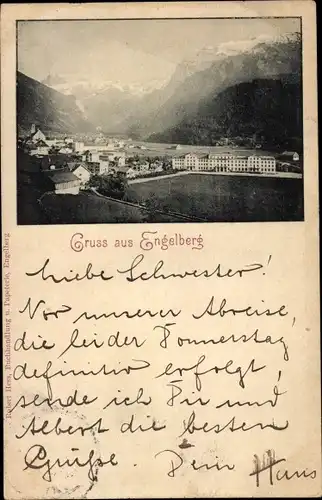 Gruss aus Engelberg
Liebe Schwester!
Vor unserer Abreise,
die leider Donnerstag
definitiv erfolgt,
sende ich Dir und
Albert die besten
Grüße. Dein Hans
Robert Hess, Buchhandlung u. Papeterie, Engelberg